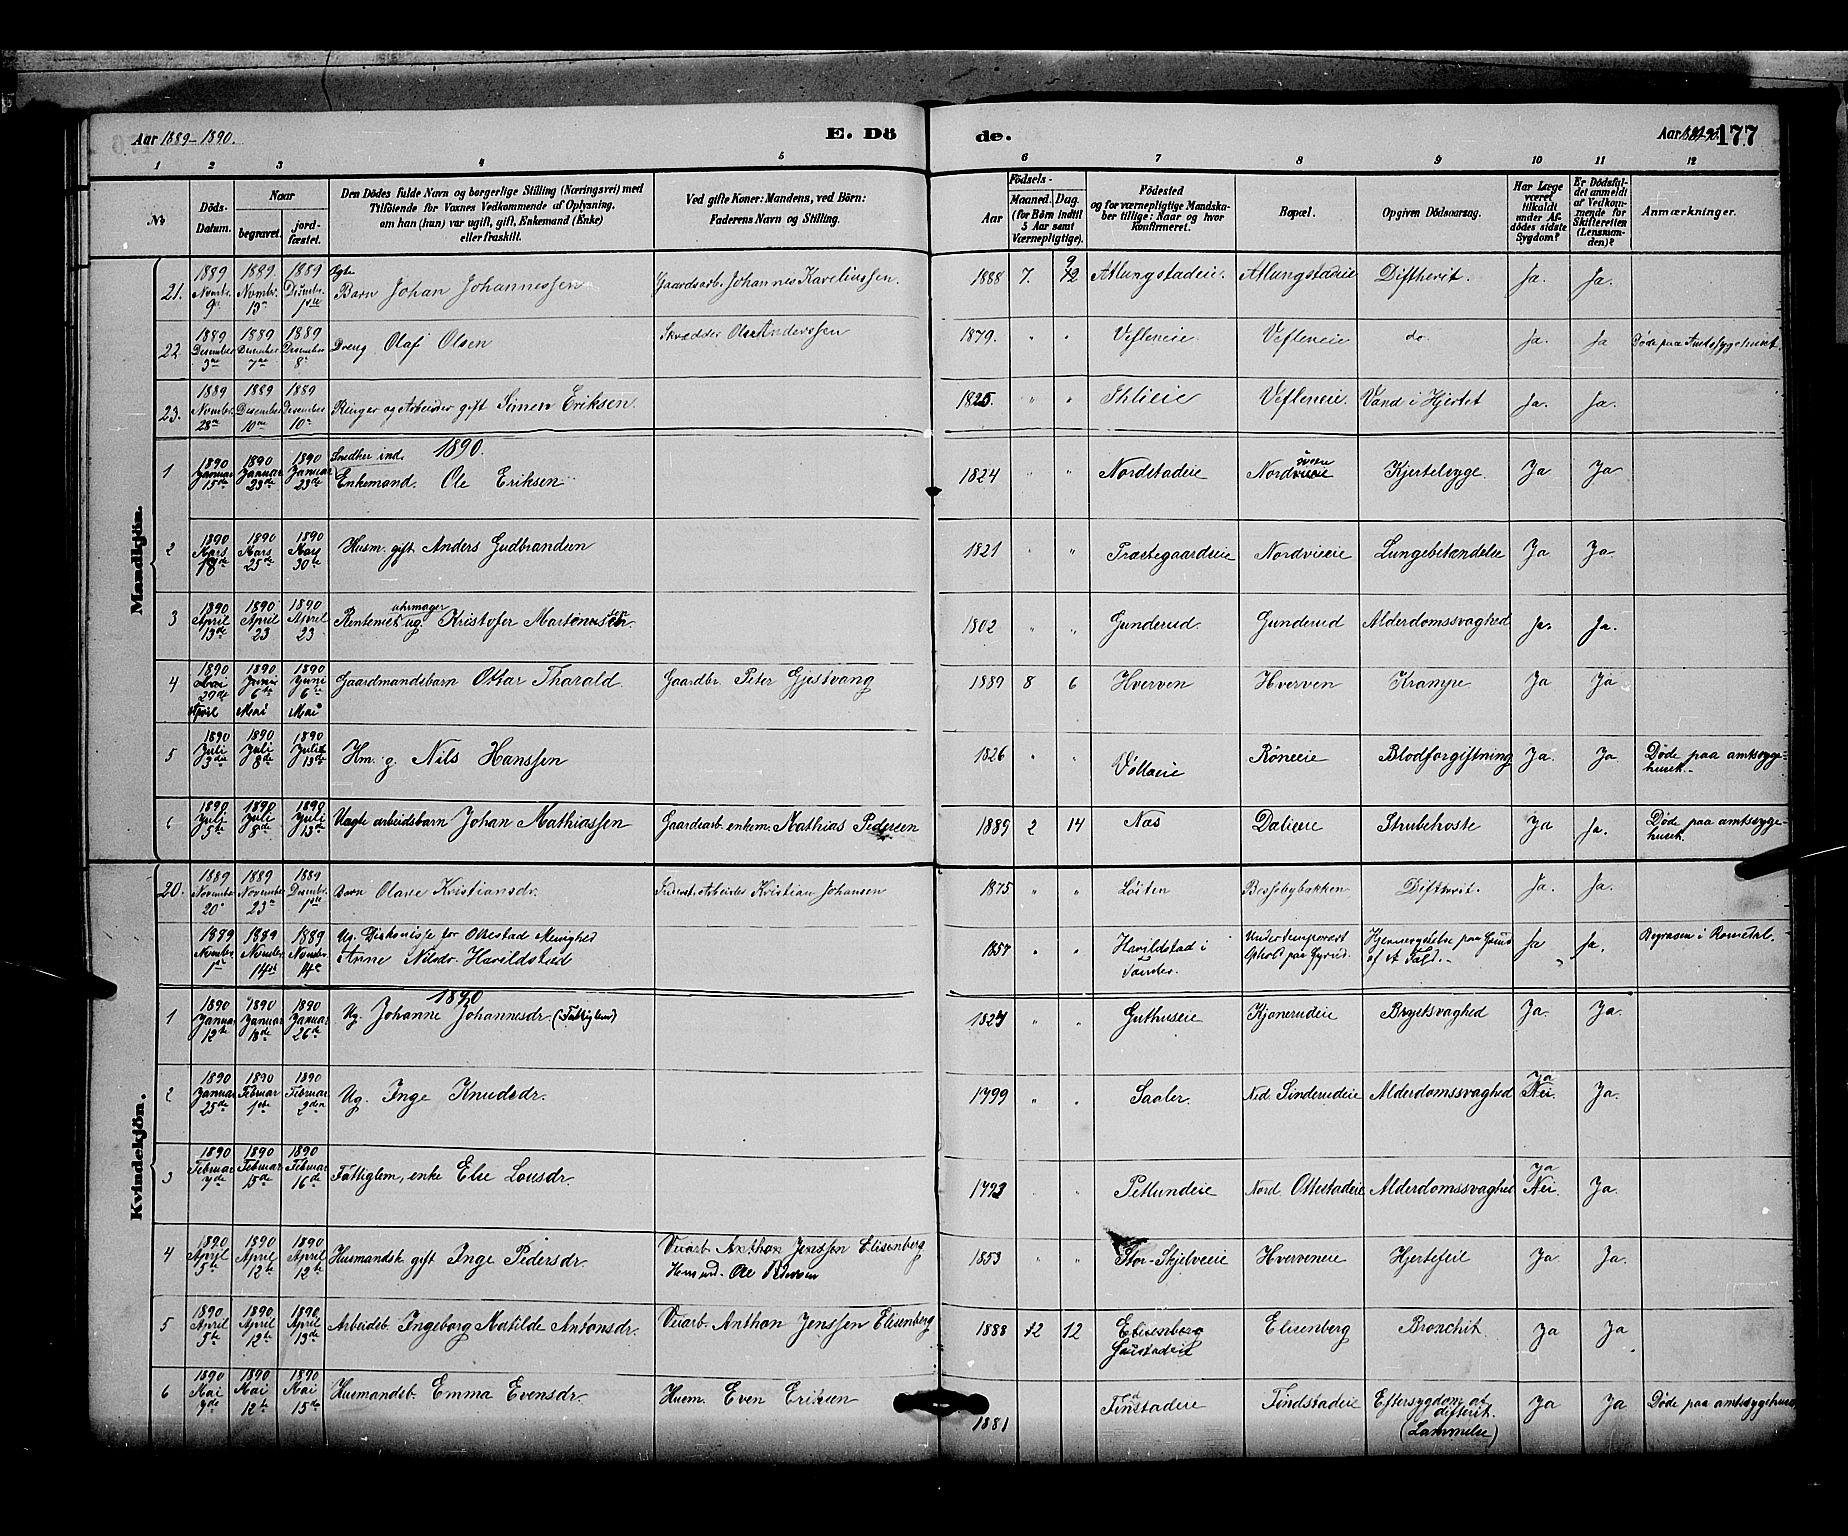 Aar 1889-1890.
E. Dö
de.
Aar 1889-90. 177
1 2 3 4 5 6 7 8 9 10 11 12
No
Döds-Datum.
Naar
begravet.
jord-fæstet.
Den Dödes fulde Navn og borgerlige Stilling (Næringsvei) med
Tilföiende for Voxnes Vedkommende af Oplysning,
om han (hun) var ugift, gift, Enkemand (Enke)
eller fraskilt.
Ved gifte Koner: Mandens, ved Börn:
Faderens Navn og Stilling.
Födsels-
Aar
Maaned. Dag.
(for Börn indtil
5 Aar samt
Værnepligtige).
Födested
og for værnepligtige Mandska-
ber tillige: Naar og hvor
konfirmeret.
Bopæl.
Opgiven Dödsaarsag.
Har Læge
været
tilkaldt
under Af-
dödes sidste
Sygdom?
Er Dödsfal-
det anmeldt
af Vedkom-
mende for
Skifteretten
(Lensman-
den)?
Anmærkninger.
Mandkjön.
21. 1889 Novbr. 9 1889. Novbr. 13 1889 Desember 1ste Ugte Barn Johan Johannessen Gaardsarb. Johannes Kareliussen. 1888 7. 9 12 Atlungstadeie. Atlungstadeie Diftherit. Ja. Ja.
22. 1889 Desember 3 1889 Desember 7 1889 Desember 8 Dreng Olaf Olsen Skrædder Ole Anderssen 1879. " " Vefleneie. Vefleneie do. Ja. Ja Døde paa Amtssygehuset.
23. 1889 Novbr. 28 1889 Desember 10 1889 Desember 10 Ringer og Arbeider gift Simen Eriksen. 1825. " " Ihlieie Vefleneie. Vand i Hjertet Ja. Ja.
1890.
1 1890 Januar 15de 1890 Januar 23de 1890 Januar 23de Snedker ind. Enkemand. Ole Eriksen 1824 " " Nordstadeie Nordvieie Kjertelsyge. Ja Ja
2 1890 Mars 18de 1890 Mars 25de 1890 May 30te Husm. gift Anders Gudbrandsen 1821 " " Præstegaardseie Nordvieie Lungebetændelse Ja Ja.
3 1890 April 13de 1890 April 23 1890 April 23 Rentenist uhrmager ug. Kristofer Martinussen. 1802 " " Gunderud. Gunderud Alderdomssvaghed Ja. Ja.
4 1890 Mai 29de April 1890 Juni 6te Mai 1890 Juni 6te Mai Gaardmandsbarn Otkar Tharald. Gaardbr. Peter Gjestvang 1889 8 6 Hverven Hverven Krampe Ja Ja
5 1890 Juli 3die 1890 Juli 8de 1890 Juli 13de Hm. g. Nils Hanssen 1826 " " Vølloeie Røneeie Blodforgiftning Ja. Ja Døde paa amtssyge-
huset.
6 1890 Juli 5te 1890 Juli 8de 1890 Juli 13de Uægte arbeidsbarn Johan Mathiassen Gaardsarb. enkem. Mathias Pedersen 1889 2 14 Næs Dalieie Strubehoste Ja Ja. Døde paa amtssyge-
huset.
Kvindekjön.
20. 1889 November 20 1889 November 23 1889 Desembr. 1ste Barn Olave Kristiansdr. Arbeider Kristian Johansen 1875 " " Løiten Bossebybakken Diftherit. Ja. Ja.
1889 Novembr. 1ste 1889 Novembr. 14de 1889 Novembr. 14de Ug. Diakonisse for Ottestad Menighed
Anne Nilsdr. Harildstad 1857 " Harildstad i
Vander. Under temporært
Ophold paa Gyrud. Hjernerystelse paa Grund
af et Fald. Ja Ja. Begraven i Romedal.
1890
1 1890 Januar 12te 1890 Januar 18de 1890 Januar 26te Ug. Johanne Johannesdr. (Fattiglem) 1827 " " Guthuseie Kjonerudeie Brystsvaghed Ja. Ja.
2 1890 Januar 25de 1890 Februar 1ste 1890 Februar 2den Ug. Inge Knudsdr. 1799 " " Saaler. Ned. Sinderudeie Alderdomssvaghed Ja Nei. Ja.
3 1890 Februar 7de 1890 Februar 15de 1890 Februar 16de Fattiglem, enke Else Lousdr. 1793 " " Petlundeie Nord Ottestadeie Alderdomssvaghed Ja Nei. Ja.
4 1890 April 5te 1890 April 12te 1890 April 12te Husmandsk. gift Inge Pedersdr. Veiarb. Anthon Jenssen Elisenberg
Husm. ind. Ole Pedersen 1853 " " Stor-Skjelveeie Hverveneie Hjertefeil Ja Ja.
5 1890 April 5te 1890 April 12te 1890. April 13de Arbeideb. Ingeborg Matilde Antonsdr. Veiarb. Anthon Jenssen Elisenberg 1888 12 12 Elisenberg
Gaustadeie Elisenberg Bronchit. Ja Ja
6 1890 Mai 7de 1890 Mai 12te 1890 Mai 15de Husmandsb. Emma Evensdr. Husm. Even Eriksen 1881 Tindstadeie Tindstadeie Eftersygdom af
difterit.
(Lammelse) Ja Ja Døde paa amtssygehuset